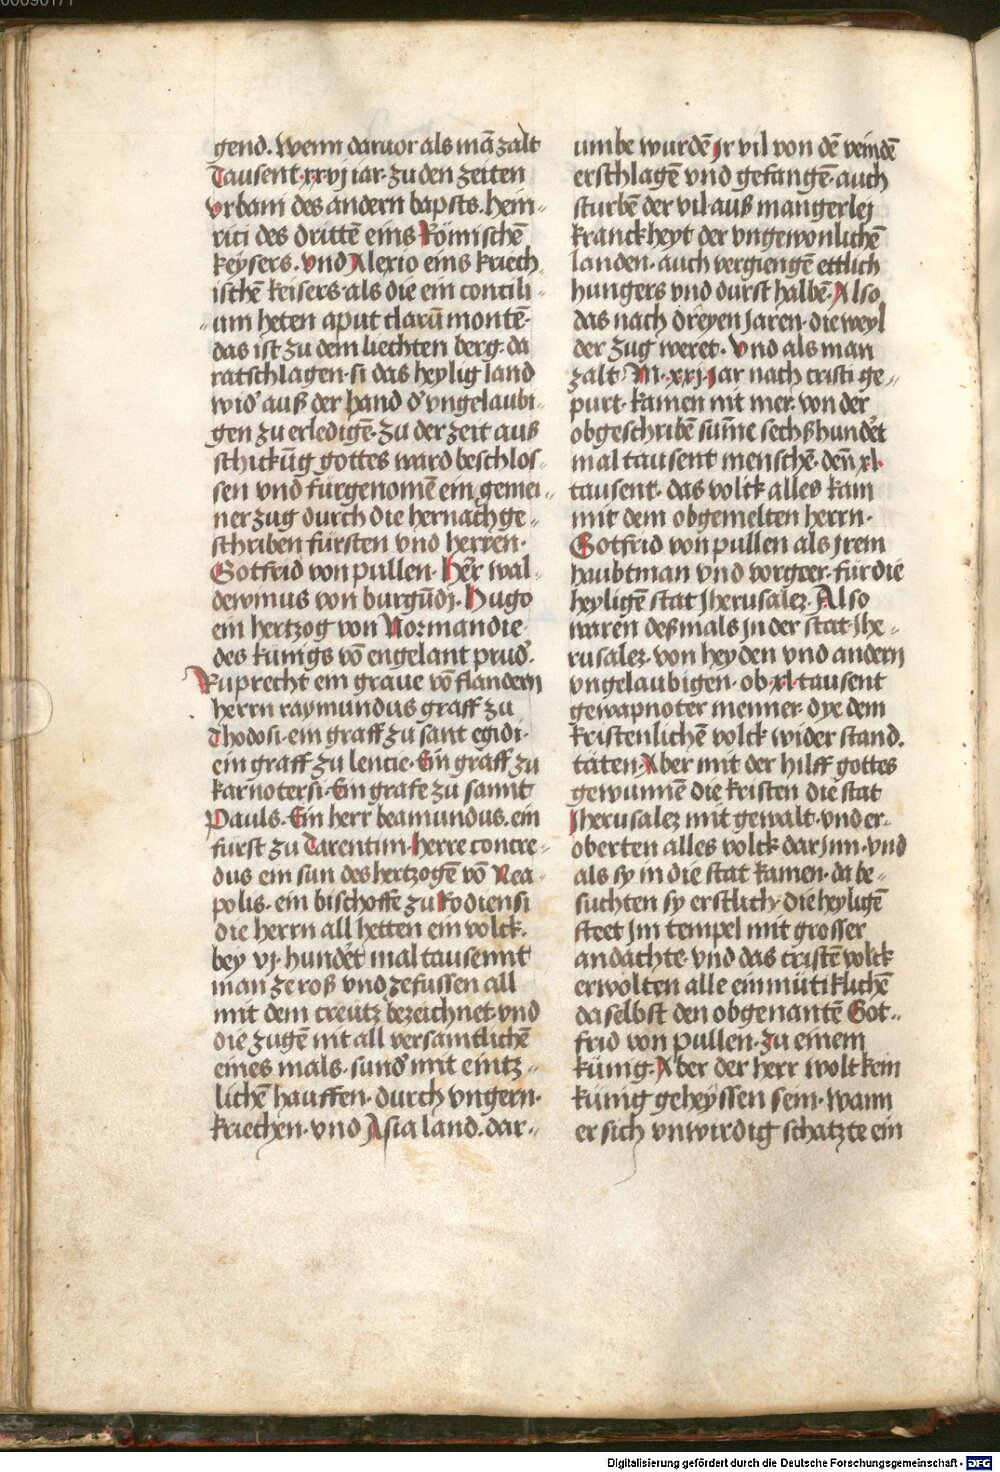 00090171
gend. Wenn daruor als mā zalt
Tausent·xx·vj iar· zu den zeiten
vrbani des andern bapsts. hein-
rici des drittē eins Römischē
keysers. vnd Alexio eins kriech-
ischē keisers· als die ein concili-
um heten aput clarū montē·
das ist zu dem liechten berg· da
ratschlagen· si das heylig land
wid' auß der hand d' vngelaubi-
gen zu erledigē· Zu der zeit auß
schickūg gottes ward beschlos-
sen vnd fürgenomē ein gemei-
ner zug durch die hernach ge-
schriben fürsten vnd herren·
Gotfrid von pullen· Her wal-
dewinus von burgūdj· Hugo
ein hertzog von Normandie·
des künigs vō engelant prud'.
Ruprecht ein graue vō flandern
herrn raymundus graff zu
Thodosi· ein graff zu sant egidi·
ein graff zu lencie· Ein graff zu
karnotersi· Ein grafe zu sannt
Pauls· Ein herr beamundus. ein
fürst zu Tarentin· Herre concre-
dus ein sun des hertzogē vō Nea-
polis· ein bischoffe zu Rodiensi
die herrn all hetten ein volck.
bey vj· hundēt mal tausennt
man ze roß vnd zefussen all
mit dem creütz bezeichnet· vnd
die zugē nit all versamtlichē
eines mals· sund' mit eintz-
lichē hauffen· durch vngern·
kriechen· vnd Asia land. dar-
umbe wurdē jr vil von dē veindē
erschlagē vnd gefangē· auch
sturbē der vil auß mangerlej
kranckheyt der vngewonlichē
landen· auch vergiengē ettlich
hungers vnd durst halbē· Also
das nach dreyen Jaren· die weyl
der zug weret· Vnd als man
zalt M·xxj· jar nach cristi ge-
purt· kamen nit mer· von der
obgeschribē sum̄e sechßhundēt
mal tausent menschē· den̄ xl·
tausent· das volck alles kam
mit dem obgemelten herrn·
Gotfrid von pullen als jrem
haubtman vnd vorgeer· für die
heyligē stat Jherusalez· Also
waren deßmals jn der stat Jhe-
rusalez· von heyden vnd andern
vngelaubigen· ob·xl·tausent
gewapnoter menner· dye dem
kristenlichē volck wider stand.
täten· Aber mit der hilff gottes
gewunnē die kristen die stat
Jherusalez mit gewalt· vnd er-
oberten alles volck darjnn· vnd
als sy in die stat kamen· da be-
suchten sy erstlich· die heyligē
steet jm tempel mit grosser
andachte· vnd das cristē volck
erwölten alle einmütiklichē
daselbst den obgenantē Got-
frid von pullen· zu einem
künig· Aber der herr wolt kein
künig geheyssen sein· wann
er sich vnwirdig schatzte ein
Digitalisierung gefördert durch die Deutsche Forschungsgemeinschaft - DFG